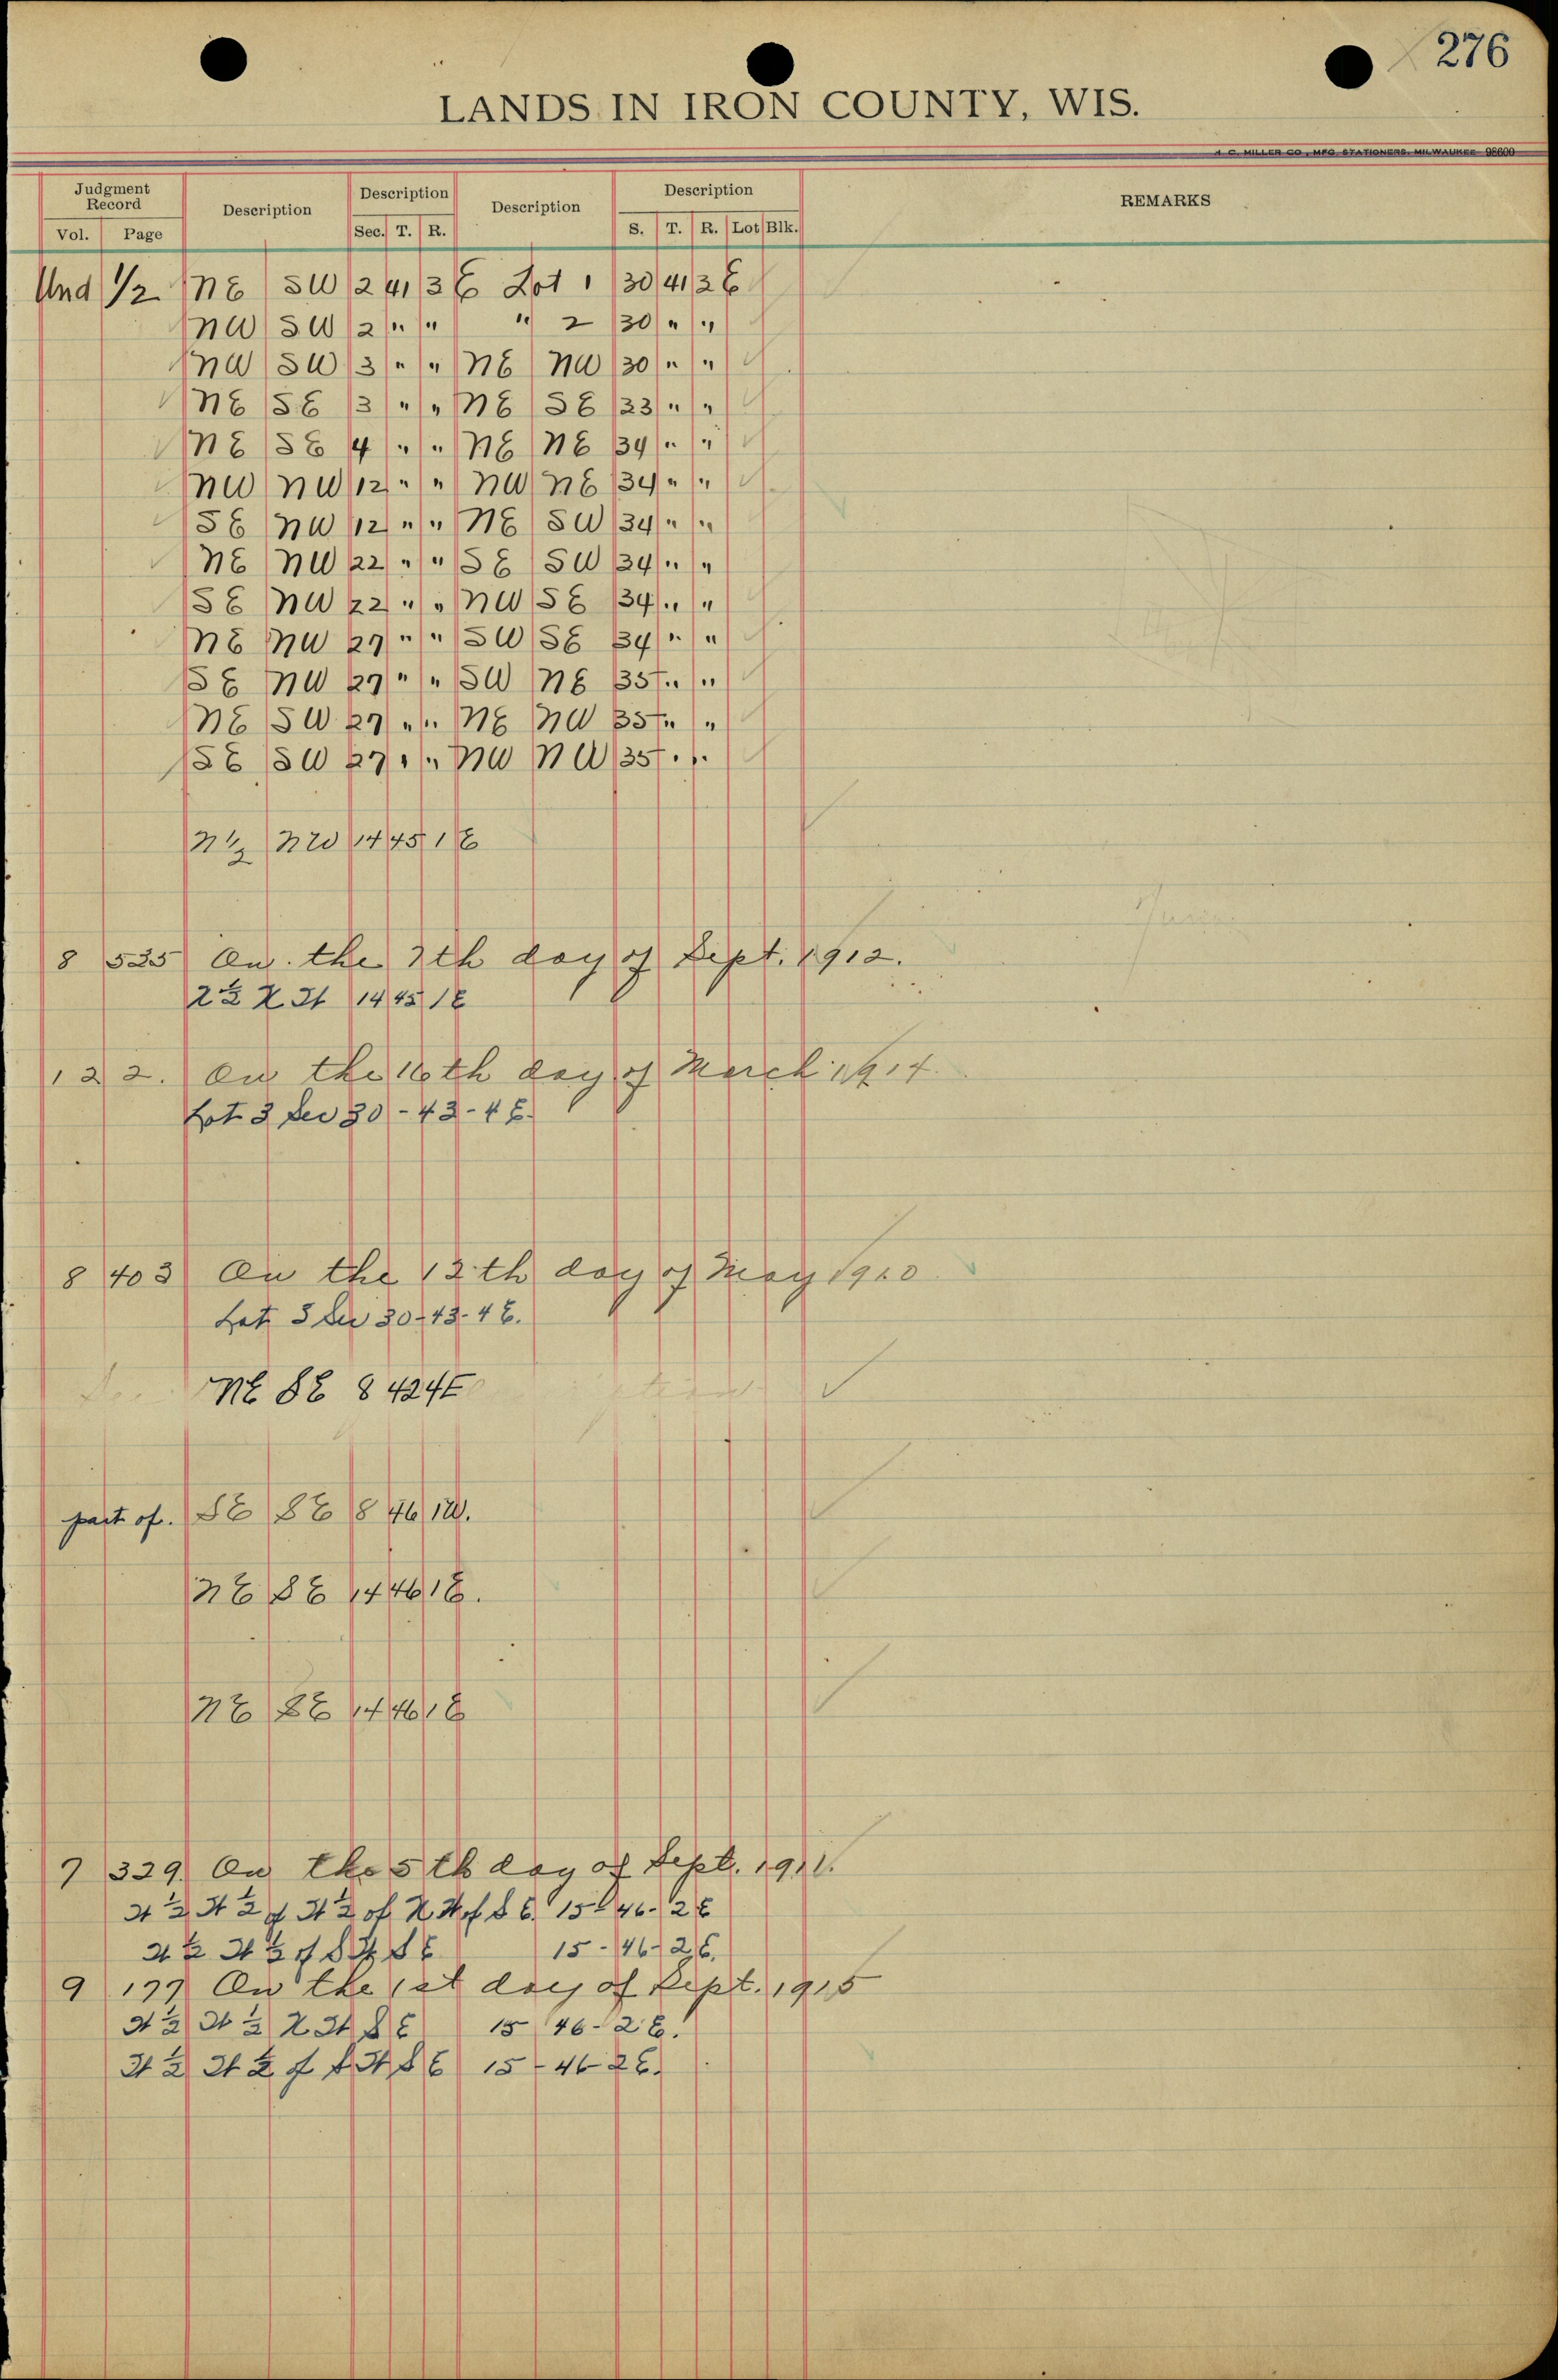 276
LANDS IN IRON COUNTY, WIS.
H. C. MILLER CO., MFG. STATIONERS, MILWAUKEE 98600
Judgment Record Description Description Description Description REMARKS
Vol. Page Sec. T. R. S. T. R. Lot Blk.
Und 1/2 NE SW 2 41 3 E Lot 1 30 41 3 E
NW SW 2 " " " 2 30 " "
NW SW 3 " " NE NW 30 " "
NE SE 3 " " NE SE 33 " "
NE SE 4 " " NE NE 34 " "
NW NW 12 " " NW NE 34 " "
SE NW 12 " " NE SW 34 " "
NE NW 22 " " SE SW 34 " "
SE NW 22 " " NW SE 34 " "
NE NW 27 " " SW SE 34 " "
SE NW 27 " " SW NE 35 " "
NE SW 27 " " NE NW 35 " "
SE SW 27 " " NW NW 35 " "
N 1/2 NW 14 45 1 E
8 535 On the 7th day of Sept. 1912.
14 45 1 E
1 2 2. On the 16th day of March 1914.
Lot 3 Sec 30 - 43 - 4 E.
8 403 On the 12th day of May 1910
Lot 3 Sec 30 - 43 - 4 E.
NE SE 8 42 4 E
part of. SE SE 8 46 1 W.
NE SE 14 46 1 E.
NE SE 14 46 1 E
7 329 On the 5th day of Sept. 1911.
W 1/2 W 1/2 of W 1/2 of N W of S E. 15 - 46 - 2 E
W 1/2 W 1/2 of S W S E 15 - 46 - 2 E.
9 177 On the 1st day of Sept. 1915
W 1/2 W 1/2 N W S E 15 46 - 2 E.
W 1/2 W 1/2 of S W S E 15 - 46 - 2 E.